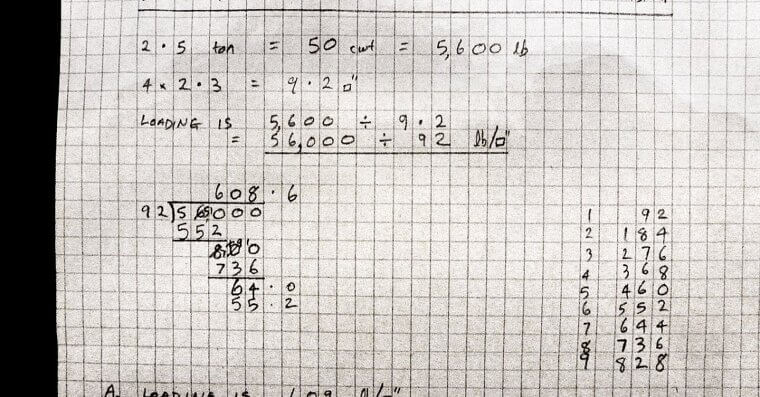 2·5 ton = 50 cwt = 5,600 lb
4 × 2·3 = 9·2 □"
LOADING IS 5,600 ÷ 9·2
= 56,000 ÷ 92 lb/□"
608·6
92)56000
552
800
736
64·0
55·2
1 92
2 184
3 276
4 368
5 460
6 552
7 644
8 736
9 828
A. LOADING IS 609 lb/□"